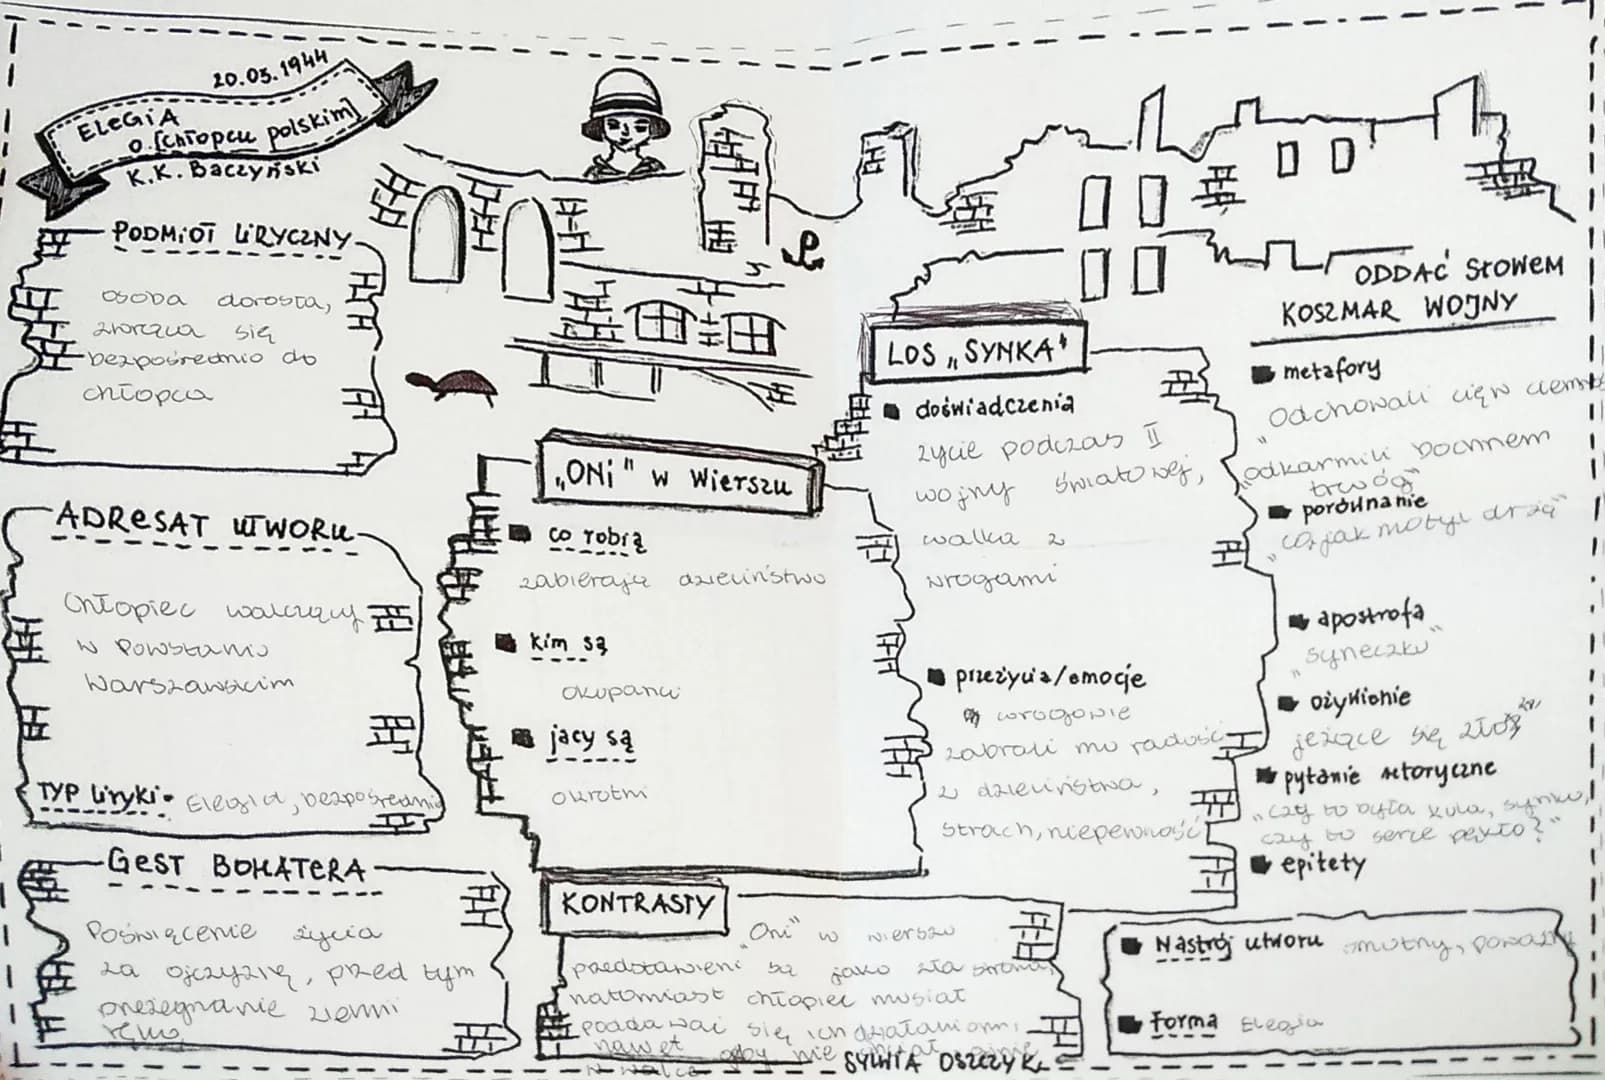 20.03.1944
ELEGIA
o [chłopcu polskim]
K.K. Baczyński
PODMIOT LIRYCZNY
osoba dorosła,
zwraca się
bezpośrednio do
chłopca
ADRESAT UTWORU
Chłopiec walczący
w Powstaniu
Warszawskim
TYP liryki: Elegia, bezpośrednia
GEST BOHATERA
Poświęcenie życia
za ojczyznę, przed tym
przeżegnanie ziemi
ręką
„ONI" w Wierszu
co robią
zabierają dzieciństwo
kim są
okupanci
jacy są
okrutni
KONTRASTY
„Oni" w wierszu
przedstawieni są jako zła strona,
natomiast chłopiec musiał
poddawać się ich działaniom,
nawet gdy nie
w walce
SYLWIA OSZCZYK
LOS „SYNKA"
doświadczenia
życie podczas II
wojny światowej,
walka z
wrogami
przeżycia/emocje
wrogowie
zabrali mu radość
z dzieciństwa,
strach, niepewność
ODDAĆ SŁOWEM
KOSZMAR WOJNY
metafory
„Odchowali cię w ciemno
„odkarmili bochnem
trwóg"
porównanie
„co jak motyl drżą"
apostrofa
„syneczku"
ożywienie
jeżące się zło
pytanie retoryczne
„czy to była kula, synku,
czy to serce pękło?"
epitety
Nastrój utworu smutny, poważny
Forma Elegia